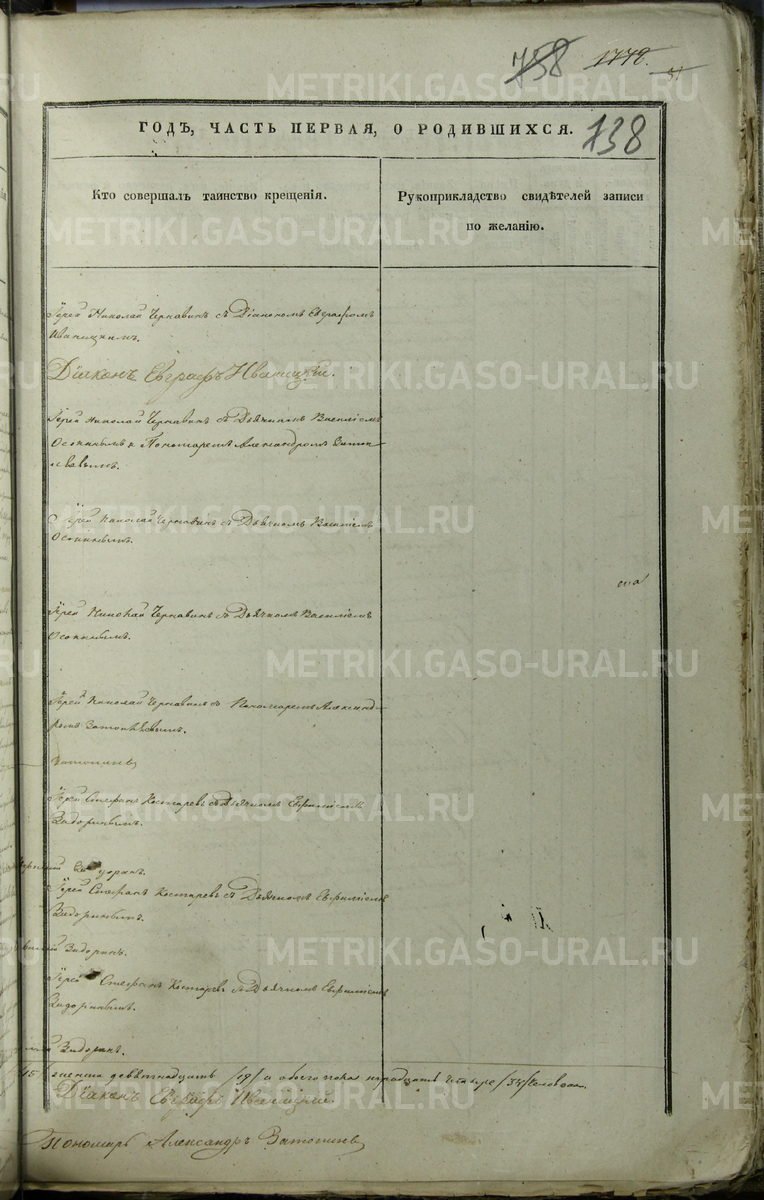 738 1772.
ГОДЪ, ЧАСТЬ ПЕРВАЯ, О РОДИВШИХСЯ.
738
Кто совершалъ таинство крещенія.
Рукоприкладство свидѣтелей записи
по желанію.
Іерей Николай Чернавинъ съ Діакономъ Евграфомъ
Иваницкимъ.
Діаконъ Евграфъ Иваницкій.
Іерей Николай Чернавинъ съ Дьячкомъ Василіемъ
Осокинымъ и Пономаремъ Александромъ
Іерей Николай Чернавинъ съ Дьячкомъ Василіемъ
Осокинымъ.
Іерей Николай Чернавинъ съ Дьячкомъ Василіемъ
Осокинымъ.
Іерей Николай Чернавинъ съ Пономаремъ Александ-
ромъ
Іерей Стефанъ Костаревъ съ Дьячкомъ Евфиміемъ
Задоринымъ.
Іерей Стефанъ Костаревъ съ Дьячкомъ Евфиміемъ
Задоринымъ.
Задоринъ.
Іерей Стефанъ Костаревъ съ Дьячкомъ Евфиміемъ
Задоринымъ.
Задоринъ.
женска девятнадцать /19/ а обоего пола тридцать четыре /34/ человека.
Діаконъ Евграфъ Иваницкій.
Пономарь Александръ
METRIKI.GASO-URAL.RU